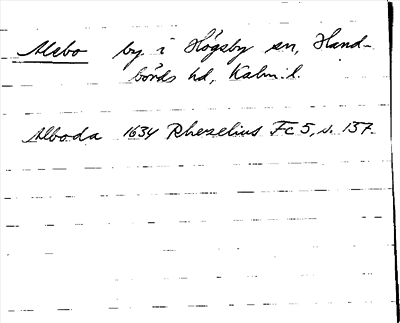 Alebo by i Högsby sn, Hand-
börds hd, Kalm. l.
Alboda 1634 Rhezelius Fc5, s. 137.